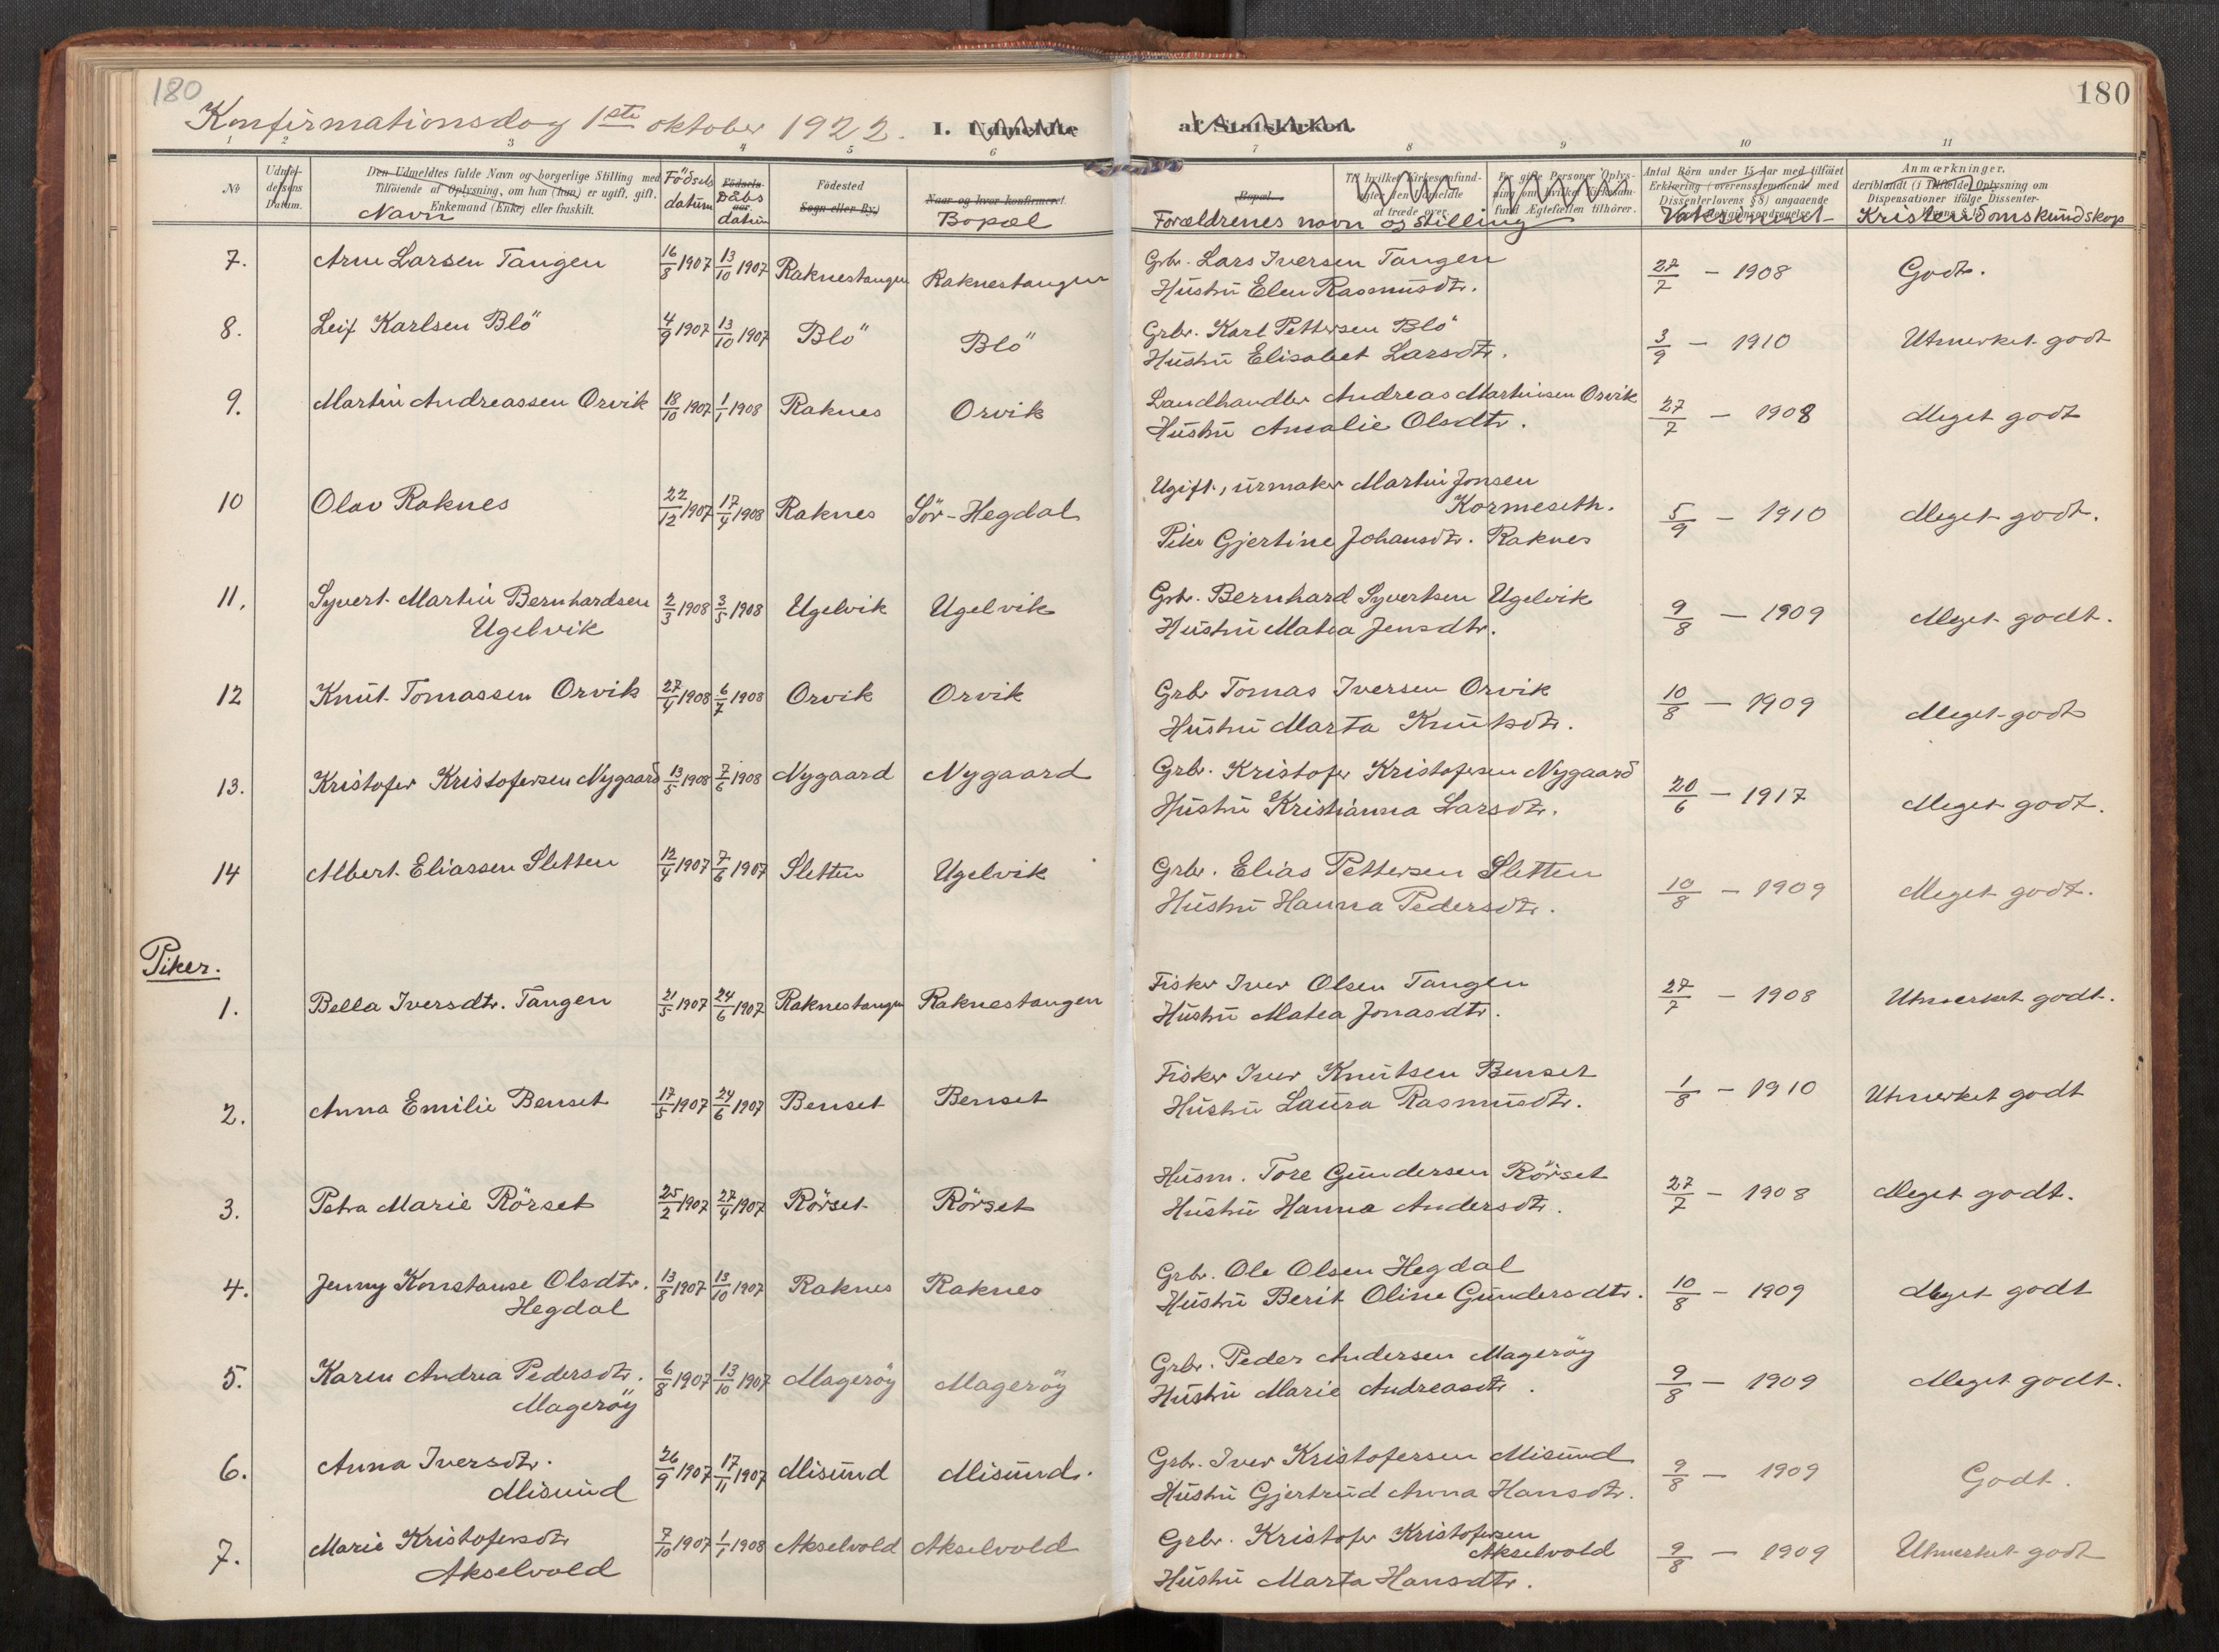 180
180
Konfirmationsdag 1ste oktober 1922.
I. Udmeldte af Statskirken.
1 2 3 4 5 6 7 8 9 10 11
No
Udmel-
delsens
Datum.
Den Udmeldtes fulde Navn og borgerlige Stilling med
Tilföiende af Oplysning, om han (hun) er ugift, gift,
Enkemand (Enke) eller fraskilt.
Navn
Födsels
datum
Födsels-
aar.
Dåbs
datum
Födested
Sogn eller By.)
Naar og hvor konfirmeret.
Bopæl
Bopæl.
Til hvilket Kirkesamfund-
at træde over.
For gifte Personer Oplys-
ning om hvilket Kirkesam-
fund Ægtefællen tilhörer.
Forældrenes navn og stilling
Antal Börn under 15 Aar med tilföiet
Erklæring i overensstemmende med
Dissenterlovens § 8) angaaende
Vaksineret
Anmærkninger,
deriblandt (i Tilfælde) Oplysning om
Dispensationer ifölge Dissenter-
Kristendomskundskap
7. Arne Larsen Tangen 16/8 1907 13/10 1907 Raknestangen Raknestangen Grbr. Lars Iversen Tangen 27/7 - 1908 Godt.
Hustru Elen Rasmusdtr.
8. Leif Karlsen Blö 4/9 1907 13/10 1907 Blö Blö Grbr. Karl Pettersen Blö 3/9 - 1910 Utmerket godt
Hustru Elisabet Larsdtr.
9. Martin Andreassen Orvik 18/10 1907 1/1 1908 Raknes Orvik Landhandler Andreas Martinsen Orvik 27/7 - 1908 Meget godt
Hustru Amalie Olsdtr.
10 Olav Raknes 22/12 1907 17/4 1908 Raknes Sör-Hegdal Ugift, urmaker Martin Jonsen
Kormeseth. 5/9 - 1910 Meget godt.
Pike Gjertine Johansdtr. Raknes
11. Syvert Martin Bernhardsen 2/3 1908 3/5 1908 Ugelvik Ugelvik Grbr. Bernhard Syvertsen Ugelvik 9/8 - 1909 Meget godt.
Ugelvik Hustru Matea Jensdtr.
12 Knut Tomassen Orvik 27/4 1908 6/7 1908 Orvik Orvik Grbr Tomas Iversen Orvik 10/8 - 1909 Meget godt
Hustru Marta Knutsdtr.
13. Kristofer Kristofersen Nygaard 13/5 1908 7/6 1908 Nygaard Nygaard Grbr. Kristofer Kristofersen Nygaard 20/6 - 1917 Meget godt.
Hustru Kristianna Larsdtr.
14 Albert Eliassen Sletten 12/4 1907 7/6 1907 Sletten Ugelvik Grbr. Elias Pettersen Sletten 10/8 - 1909 Meget godt.
Hustru Hanna Pedersdtr.
Piker.
1. Bella Iversdtr. Tangen 21/5 1907 24/6 1907 Raknestangen Raknestangen Fisker Iver Olsen Tangen 27/7 - 1908 Utmerket godt.
Hustru Matea Jonasdtr.
2. Anna Emilie Benset 17/5 1907 24/6 1907 Benset Benset Fisker Iver Knutsen Benset 1/8 - 1910 Utmerket godt
Hustru Laura Rasmusdtr.
3. Petra Marie Rörset 25/2 1907 27/4 1907 Rörset Rörset Husm. Tore Gundersen Rörset 27/7 - 1908 Meget godt.
Hustru Hanna Andersdtr.
4. Jenny Konstanse Olsdtr. 13/8 1907 13/10 1907 Raknes Raknes Grbr. Ole Olsen Hegdal 10/8 - 1909 Meget godt
Hegdal Hustru Berit Oline Gundersdtr.
5. Karen Andrea Pedersdtr. 6/8 1907 13/10 1907 Mageröy Mageröy Grbr. Peder Andersen Mageröy 9/8 - 1909 Meget godt.
Mageröy Hustru Marie Andreasdtr.
6. Anna Iversdtr. 26/9 1907 17/11 1907 Misund Misund. Grbr. Iver Kristofersen Misund 9/8 - 1909 Godt.
Misund Hustru Gjertrud Anna Hansdtr.
7. Marie Kristofersdtr 7/10 1907 1/1 1908 Akselvold Akselvold Grbr. Kristofer Kristofersen
Akselvold Akselvold 9/8 - 1909 Utmerket godt
Hustru Marta Hansdtr.